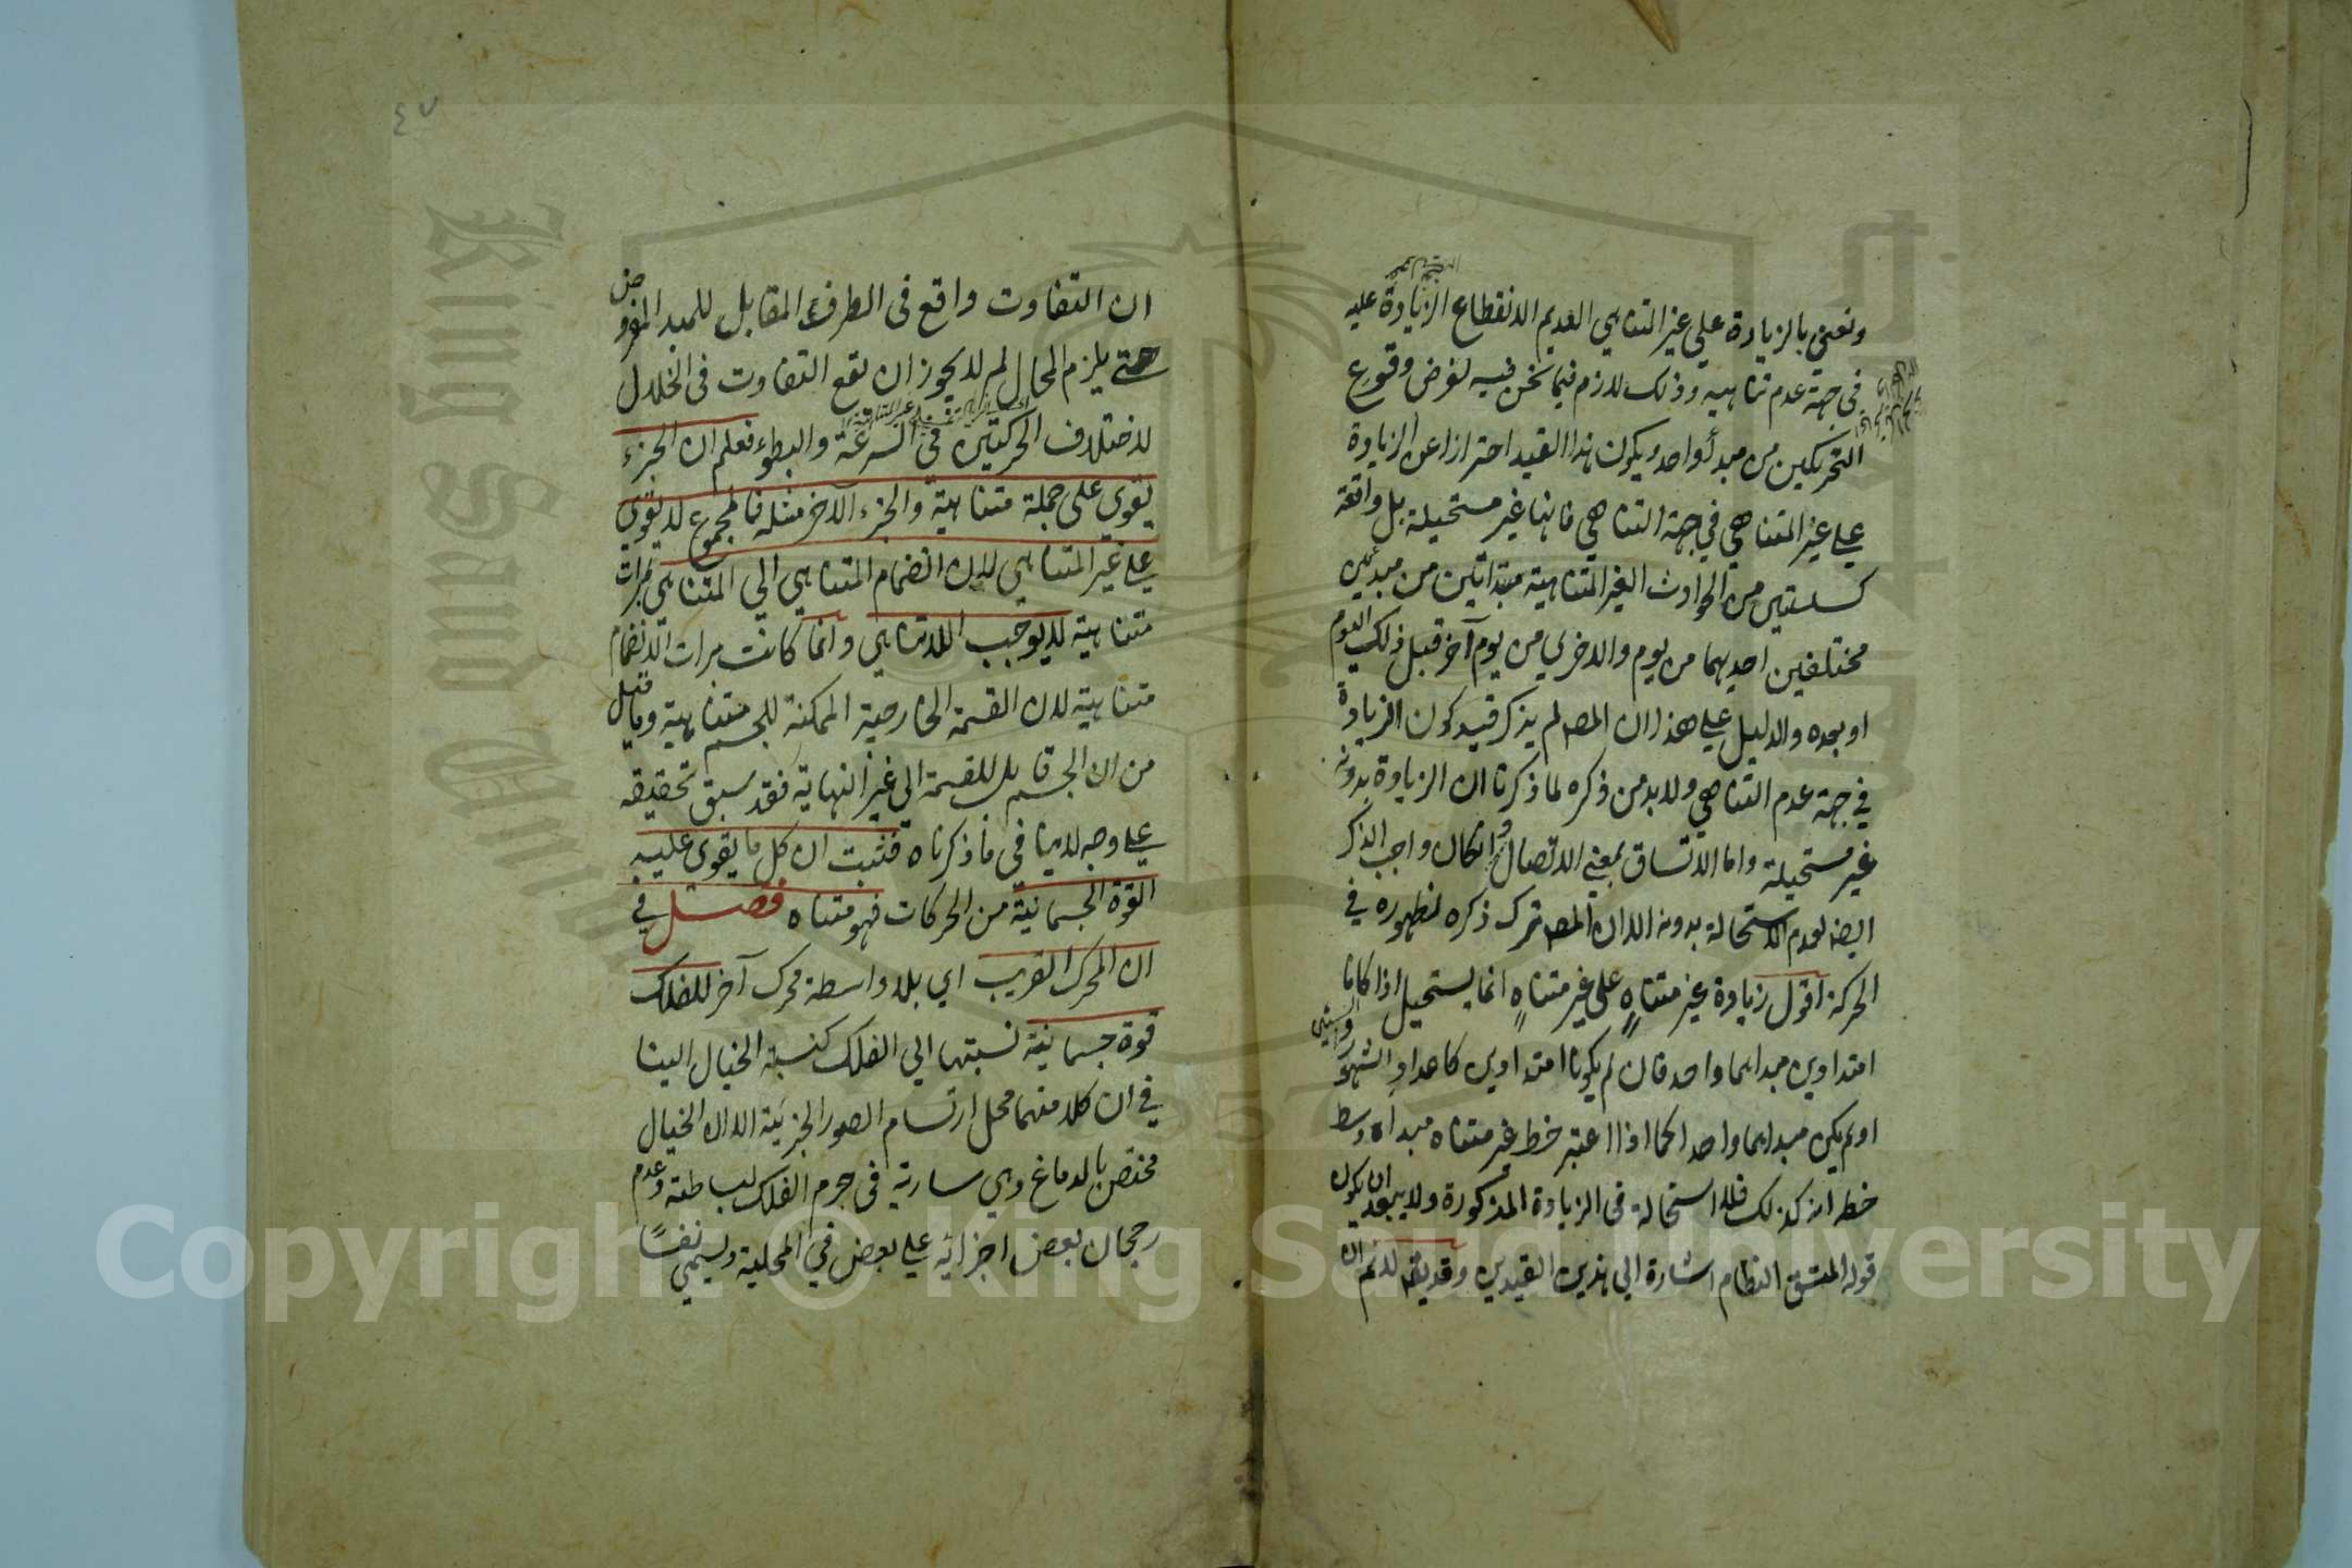 ونعني بالزيادة علي غير المتناهي العديم الانقطاع الزيادة عليه
في جهة عدم تناهيه وذلك لازم فيما نحن فيه لفرض وقوع
التحريكين من مبدأ واحد ويكون هذا القيد احترازا عن الزيادة
علي غير المتناهي في جهة التناهي فانها غير مستحيلة بل واقعة
كسلسلتين من الحوادث الغير المتناهية مبتدأتين من مبدئين
مختلفين احديهما من يوم والاخري من يوم آخر قبل ذلك اليوم
او بعده والدليل علي هذا ان المصـ لم يذكر قيد كون الزيادة
في جهة عدم التناهي ولابد من ذكره لما ذكرنا ان الزيادة بدونه
غير مستحيلة واما الاتساق بمعني الاتصال وان كان واجب الذكر
ايضـ لعدم الاستحالة بدونه الا ان المصـ ترك ذكره لظهوره في
الحركة اقول زيادة غير متناهٍ علي غير متناهٍ انما يستحيل اذا كانا
امتدادين مبدأهما واحد فان لم يكونا امتدادين كاعداد الشهور
والسنين
او لم يكن مبدأهما واحدا كما اذا اعتبر خط غير متناه مبدأه وسط
خط آخر كذلك فلا استحالة في الزيادة المذكورة ولا يبعد ان يكون
قوله المتسق النظام اشارة الي هذين القيدين وقد يقـ لا نم ان
٤٧
ان التفاوت واقع في الطرف المقابل للمبدأ المفروض
حتي يلزم المحال لم لا يجوز ان يقع التفاوت في الخلال
لاختلاف الحركتين في السرعة والبطوء فعلم ان الجزء
يقوي علي جملة متناهية والجزء الآخر مثله فالمجموع لا يقوي
علي غير المتناهي لان انضمام المتناهي الي المتناهي بمرات
متناهية لا يوجب اللاتناهي وانما كانت مرات الانضمام
متناهية لان القسمة الخارجية الممكنة للجسم متناهية وما قيل
من ان الجسم قابل للقسمة الي غير النهاية فقد سبق تحقيقه
علي وجه لا ينافي ما ذكرناه فثبت ان كل ما يقوي عليه
القوة الجسمانية من الحركات فهو متناه فصل في
ان المحرك القريب اي بلا واسطة محرك آخر للفلك
قوة جسمانية نسبتها الي الفلك كنسبة الخيال الينا
في ان كلا منهما محل ارتسام الصور الجزئية الا ان الخيال
مختص بالدماغ وهي سارية في جرم الفلك لبساطته وعدم
رجحان بعض اجزائه علي بعض في المحلية ويسمي نفسًا
Copyright © King Saud University